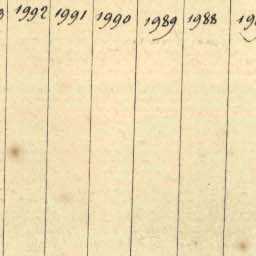 1992 1991 1990 1989 1988